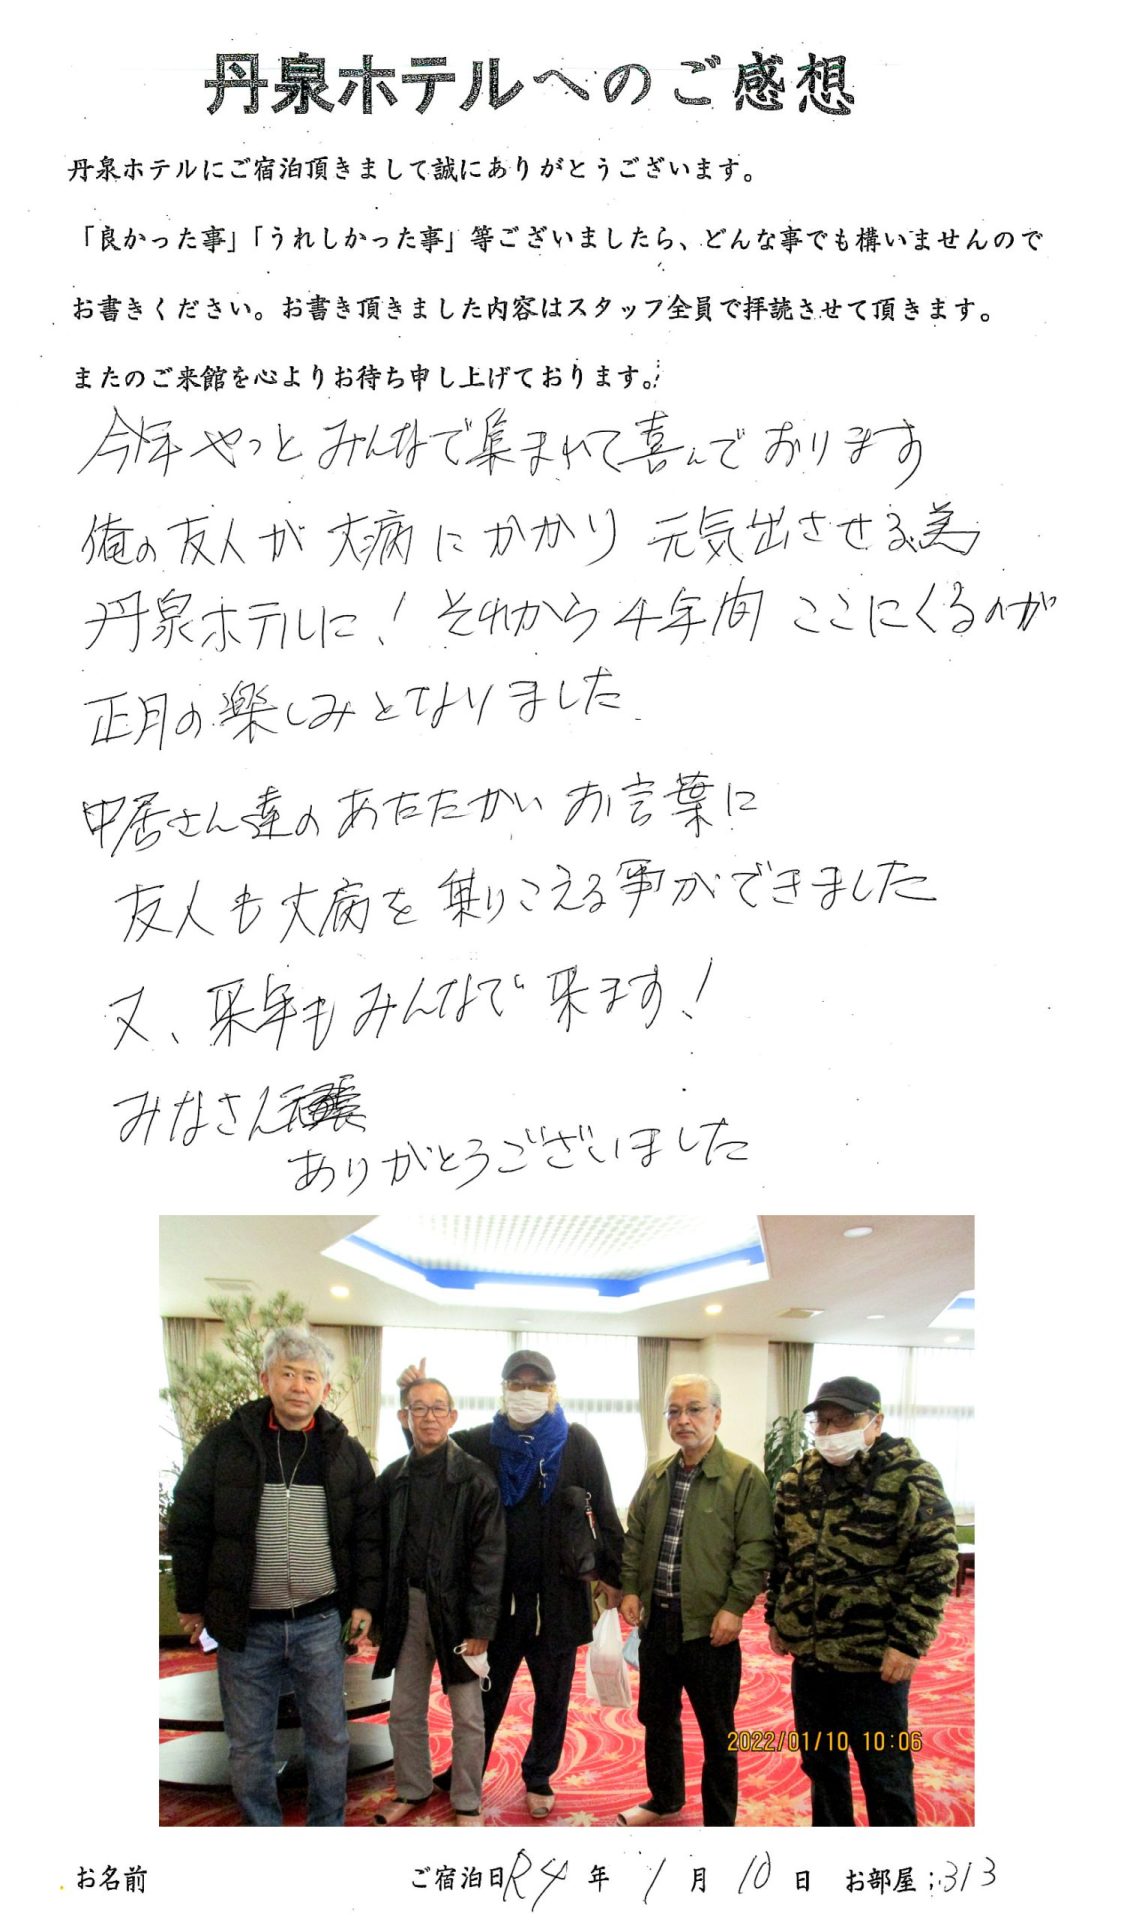 丹泉ホテルへのご感想
丹泉ホテルにご宿泊頂きまして誠にありがとうございます。
「良かった事」「うれしかった事」等ございましたら、どんな事でも構いませんので
お書きください。お書き頂きました内容はスタッフ全員で拝読させて頂きます。
またのご来館を心よりお待ち申し上げております。
今年やっとみんなで集まれて喜んでおります
俺の友人が大病にかかり元気出させる為
丹泉ホテルに！それから4年間ここにくるのが
正月の楽しみとなりました
中居さん達のあたたかいお言葉に
友人も大病を乗りこえる事ができました
又、来年もみんなで来ます！
みなさん
ありがとうございました
2022/01/10 10:06
お名前 ご宿泊日R4年 1月 10日 お部屋;313